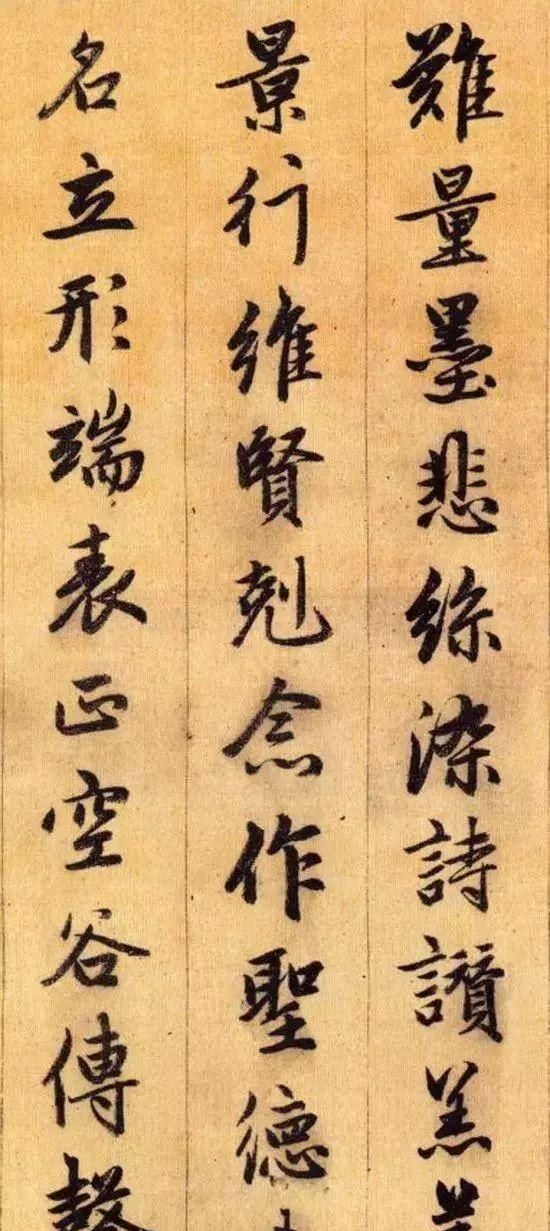 難量墨悲絲染詩讚羔
景行維賢剋念作聖德
名立形端表正空谷傳